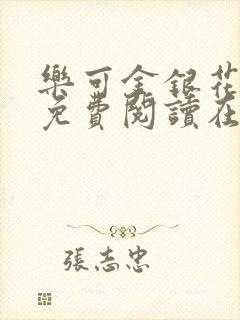 樂可金銀花
免費閱讀在
張志忠